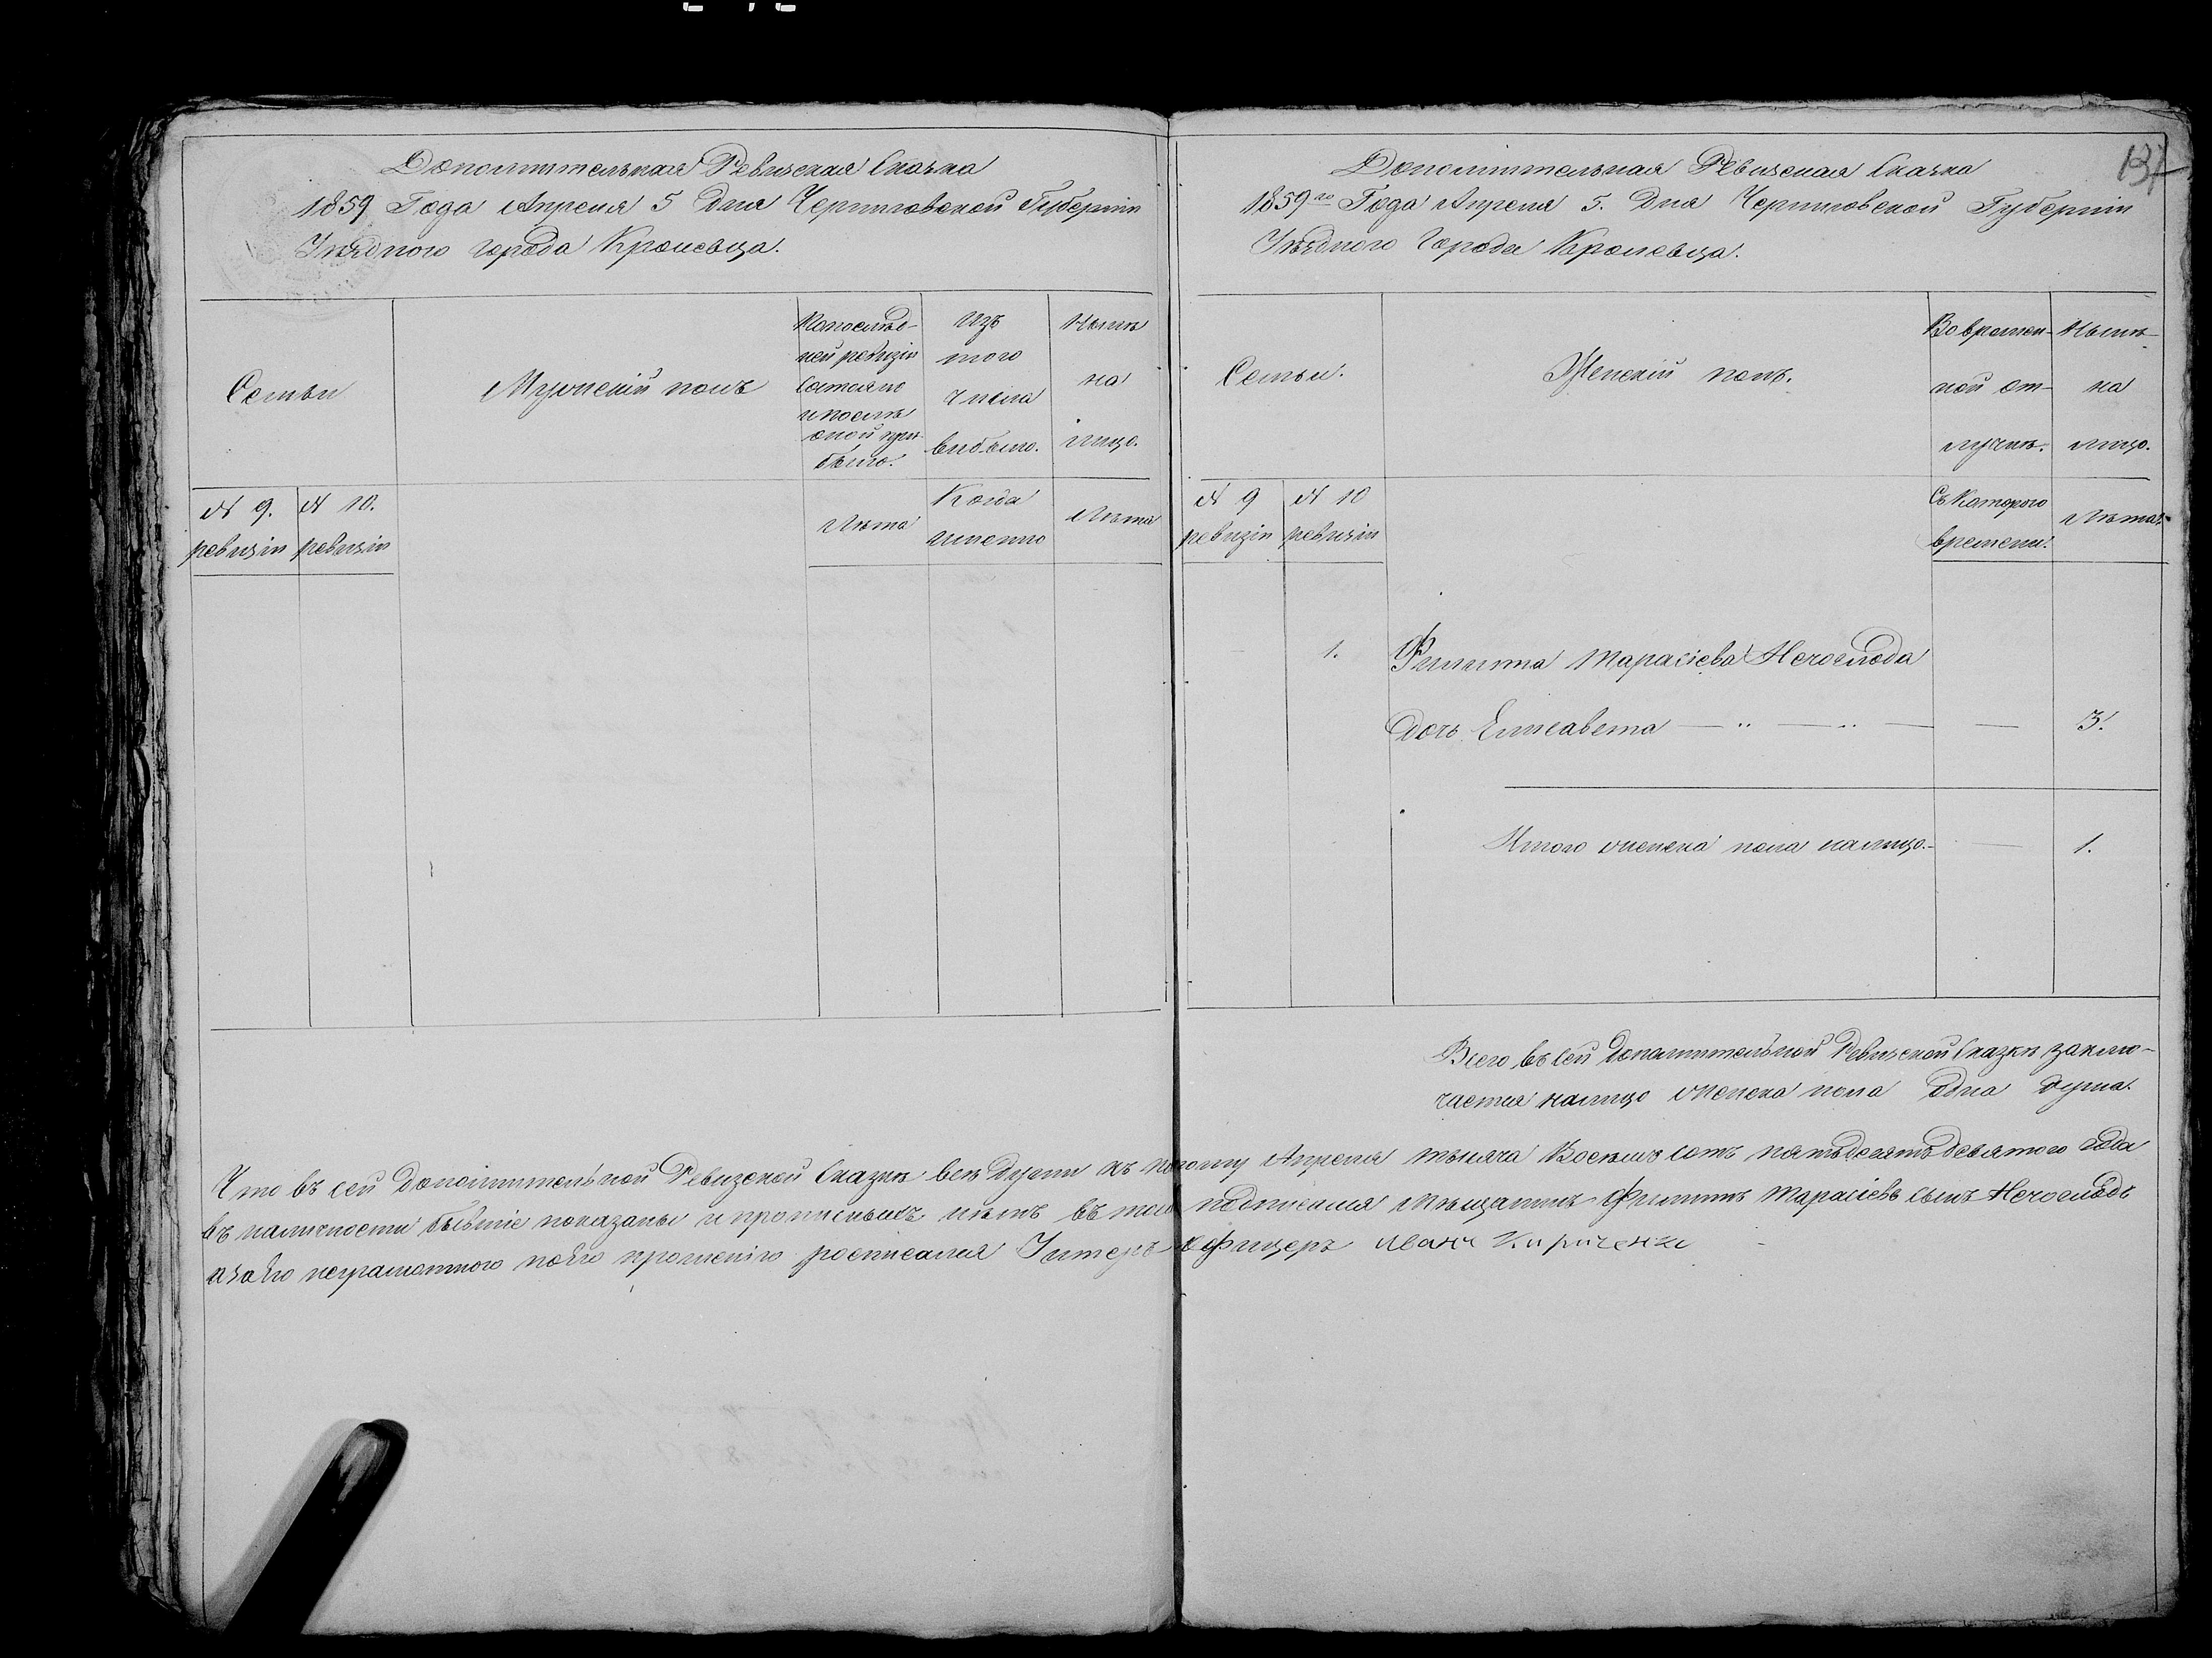 Дополнительная Ревизская Сказка
1859 Года Апреля 5 Дня Черниговской Губерніи
Уѣзднаго города Кролевца.
Семьи
Мужескій полъ
Копослѣд-
ней ревизіи
состояло
и послѣ
оной при-
было.
Изъ
того
числа
выбыло.
Нынѣ
на
лицо.
№ 9.
ревизіи
№ 10.
ревизіи
Лѣта
Когда
именно
Лѣта
137
Дополнительная Ревизская Сказка
1859го Года Апреля 5. Дня Черниговской Губерніи
Уѣзднаго Города Кролевца.
Семьи.
Женскій полъ.
Во времен-
ной от-
лучкѣ.
Нынѣ-
на
лицо.
№ 9
ревизіи
№ 10
ревизіи
Съ Которого
времени.
Лѣта.
1. Филипа Тарасіева Нечоглода
дочь Елисавета — " — " — — 3.
Итого женска пола налицо. 1.
Всего въ сей дополнительной Ревизской Сказкѣ заклю-
чается налицо женска пола одна душа.
Что въ сей Дополнительной Ревизской Сказкѣ всѣ души къ Апреля тысяча Восемь сотъ пятьдесятъ девятого года
въ наличности бывшіе показаны и прописныхъ нѣтъ въ томъ подписался Мѣщанинъ Филипъ Тарасіевъ сынъ Нечоглодъ
а за его неграмотного по его прошенію росписался Унтеръ офицеръ Иванъ Кириченко